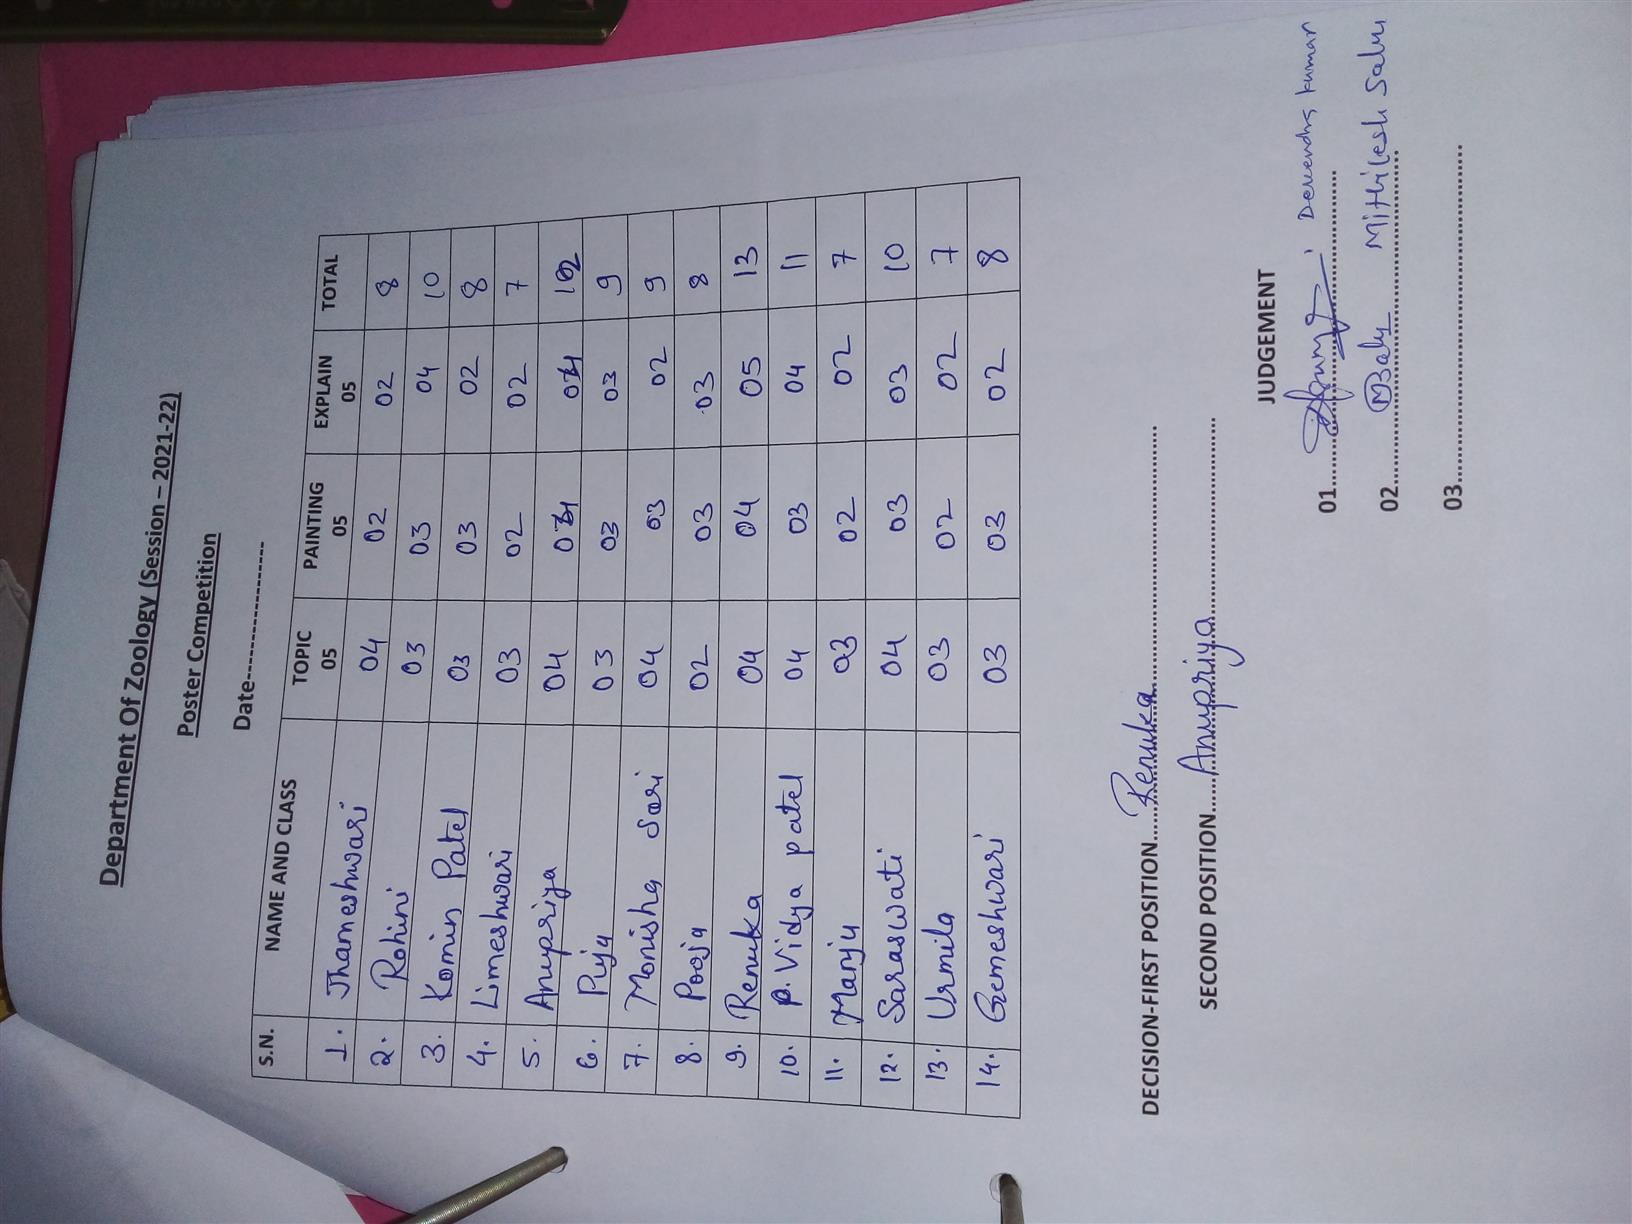 Department Of Zoology (Session – 2021-22)
Poster Competition
Date---------------
S.N. NAME AND CLASS TOPIC 05 PAINTING 05 EXPLAIN 05 TOTAL
1. Jhameshwari 04 02 02 8
2. Rohini 03 03 04 10
3. Komin Patel 03 03 02 8
4. Limeshwari 03 02 02 7
5. Anupriya 04 04 04 12
6. Puju 03 03 03 9
7. Monisha Sori 04 03 02 9
8. Pooja 02 03 03 8
9. Renuka 04 04 05 13
10. P. Vidya patel 04 03 04 11
11. Manju 03 02 02 7
12. Saraswati 04 03 03 10
13. Urmila 03 02 02 7
14. Gemeshwari 03 03 02 8
DECISION-FIRST POSITION....Renuka....
SECOND POSITION....Anupriya....
JUDGEMENT
01.... Devendra Kumar
02.... Mithilesh Sahu
03....